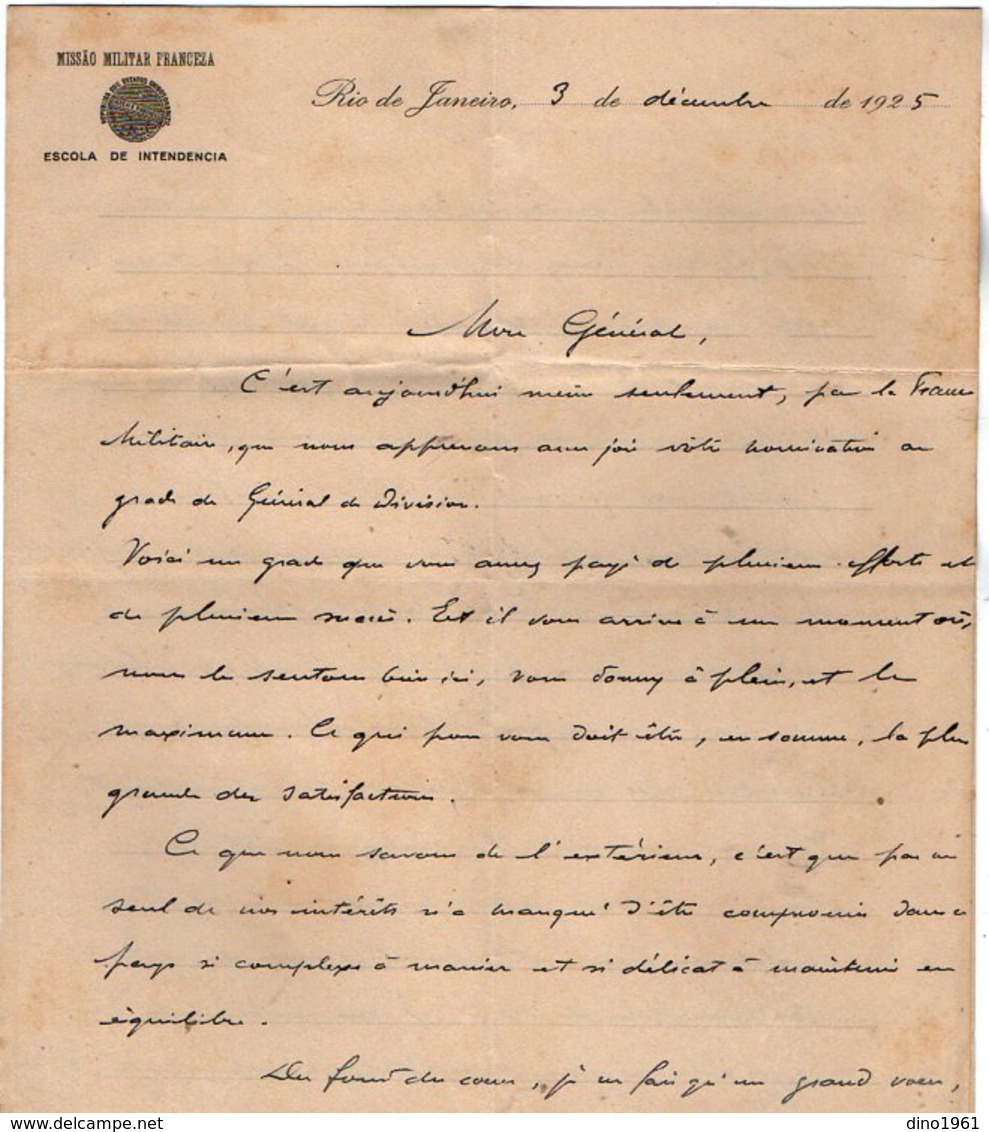 MISSÃO MILITAR FRANCEZA
ESCOLA DE INTENDENCIA
Rio de Janeiro, 3 de décembre de 1925
Mon Général,
C'est aujourd'hui même seulement, par la France
Militaire, que nous apprenons avec joie votre nomination au
grade de Général de Division.
Voici un grade que vous avez payé de plusieurs efforts et
de plusieurs succès. Et il vous arrive à un moment où,
nous le sentons bien ici, vous donnez à plein, et le
maximum. Ce qui pour vous doit être, en somme, la plus
grande des satisfactions.
Ce que nous savons de l'extérieur, c'est que pas un
seul de nos intérêts n'a manqué d'être compromis dans ce
pays si complexe à manier et si délicat à maintenir en
équilibre.
Du fond du coeur, je ne fais qu'un grand voeu,
dino1961